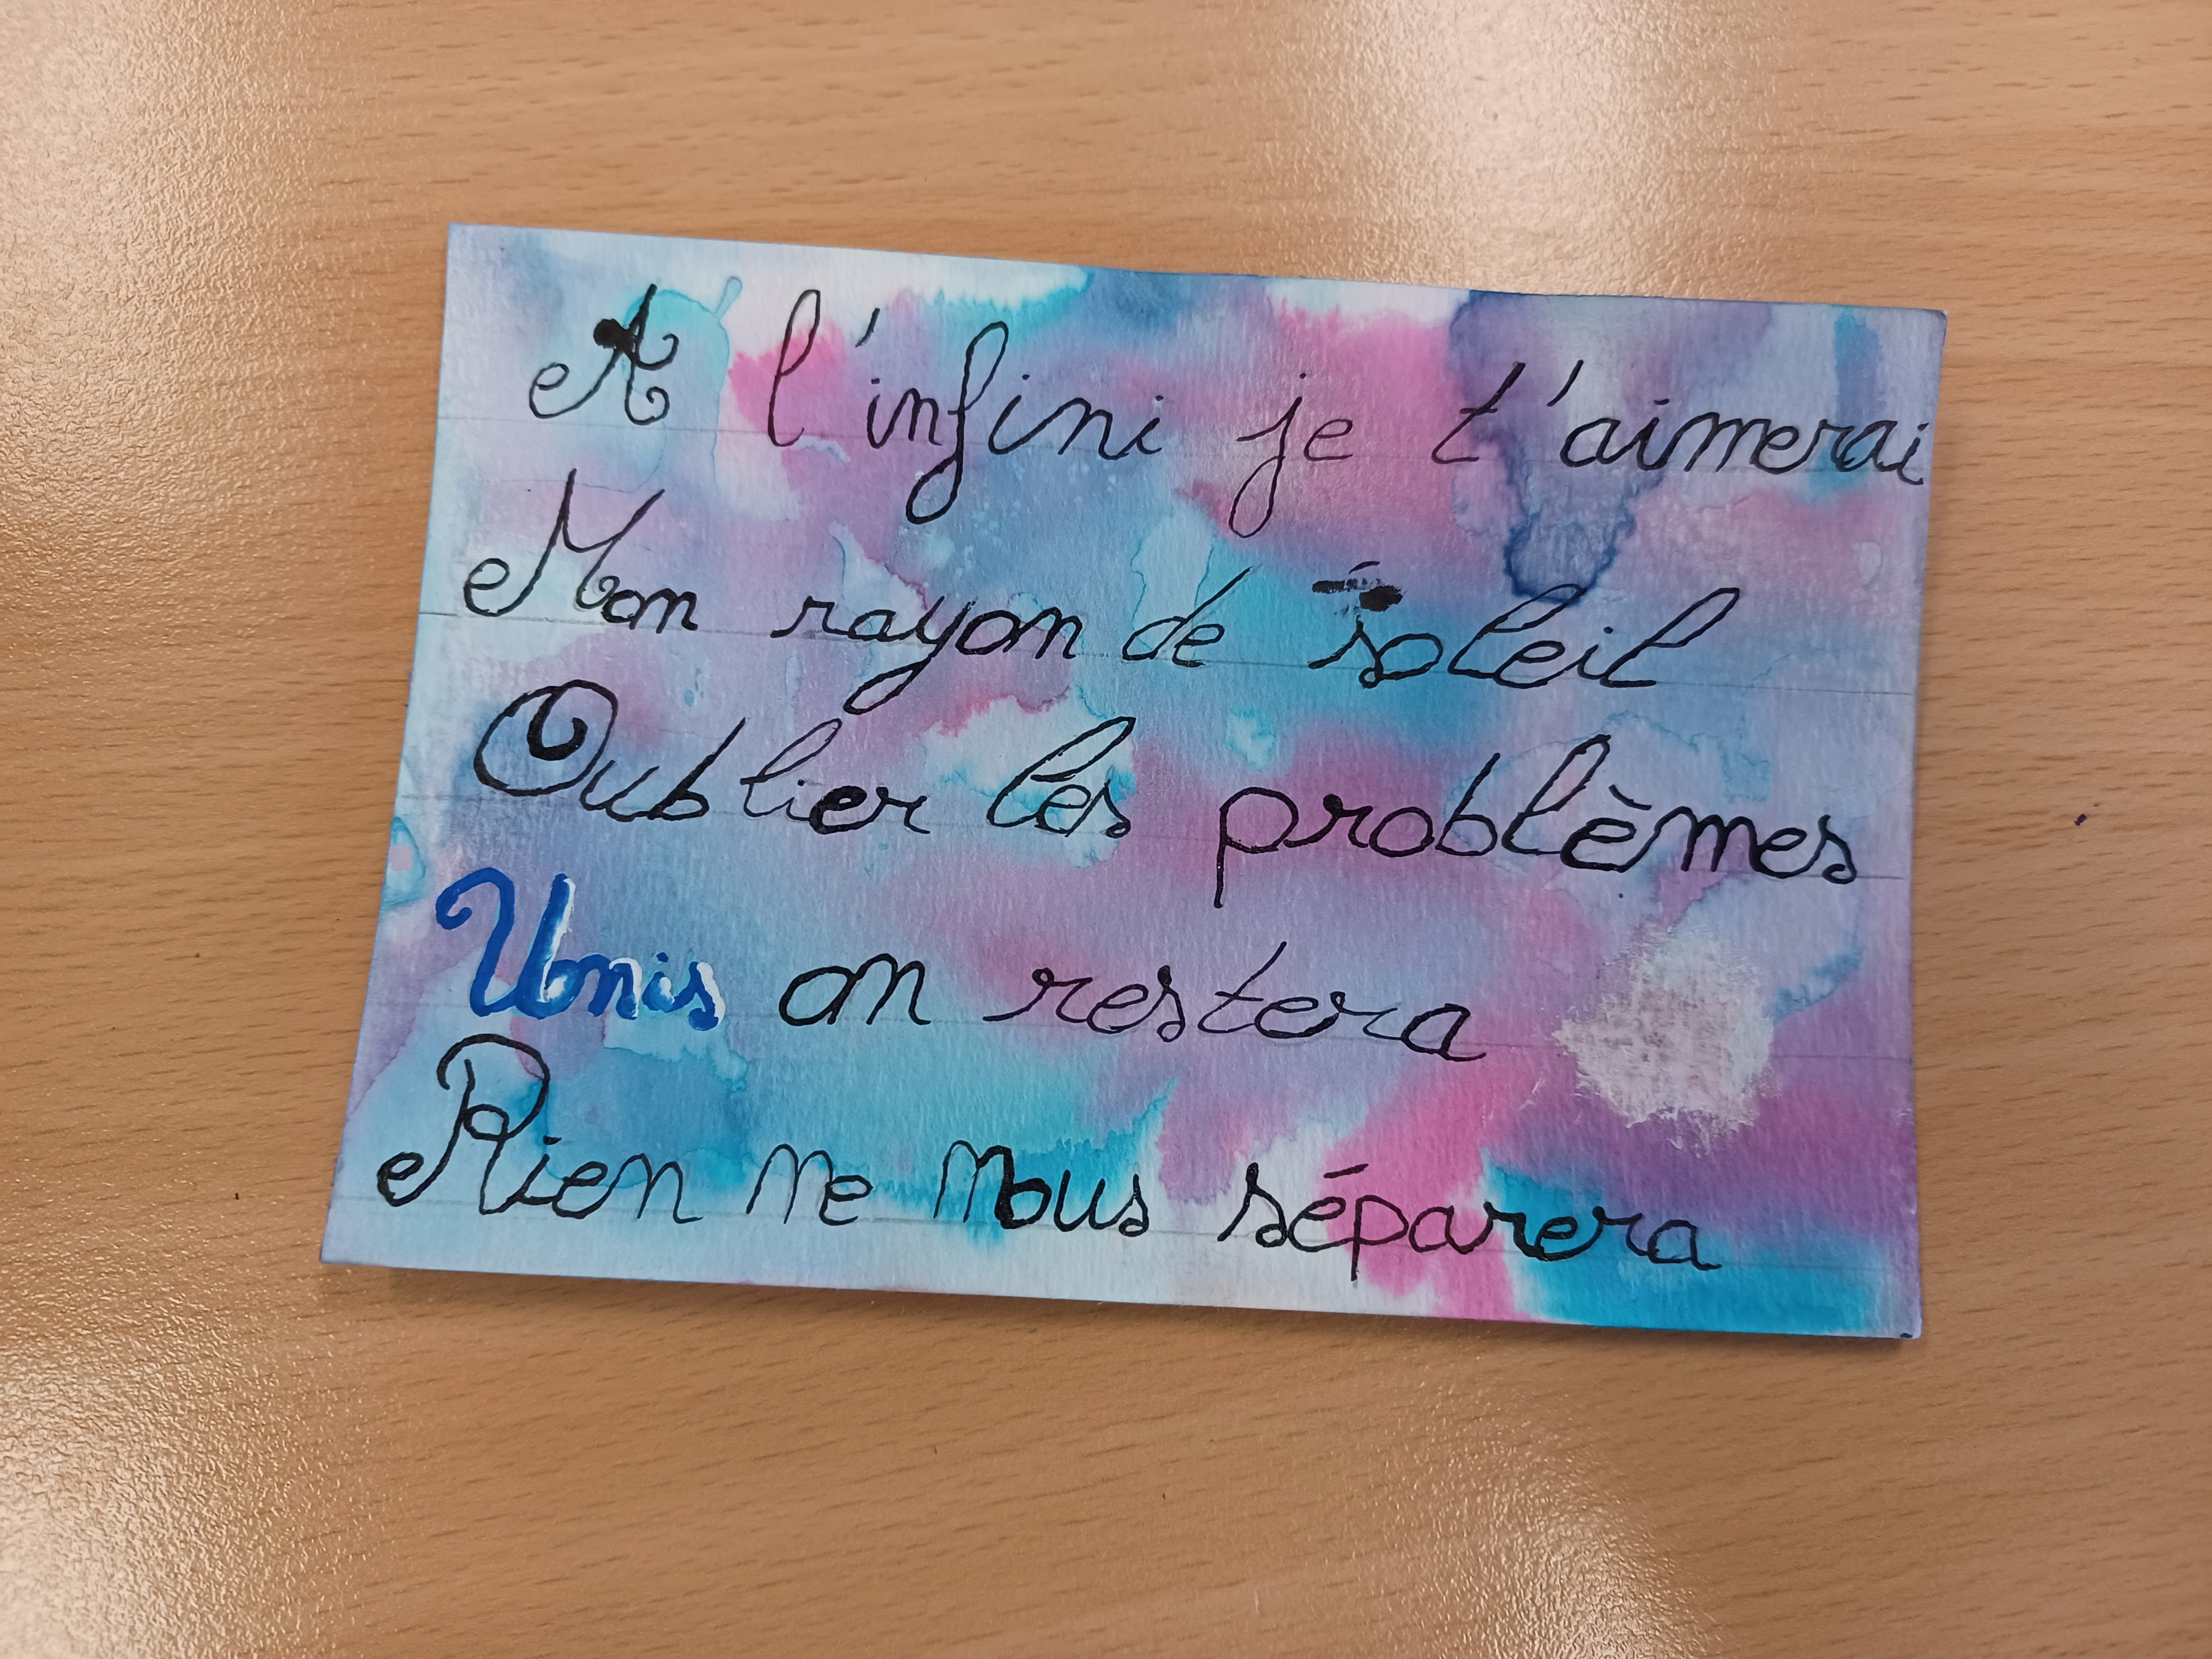 A l'infini je t'aimerai
Mon rayon de soleil
Oublier les problèmes
Unis on restera
Rien ne nous séparera